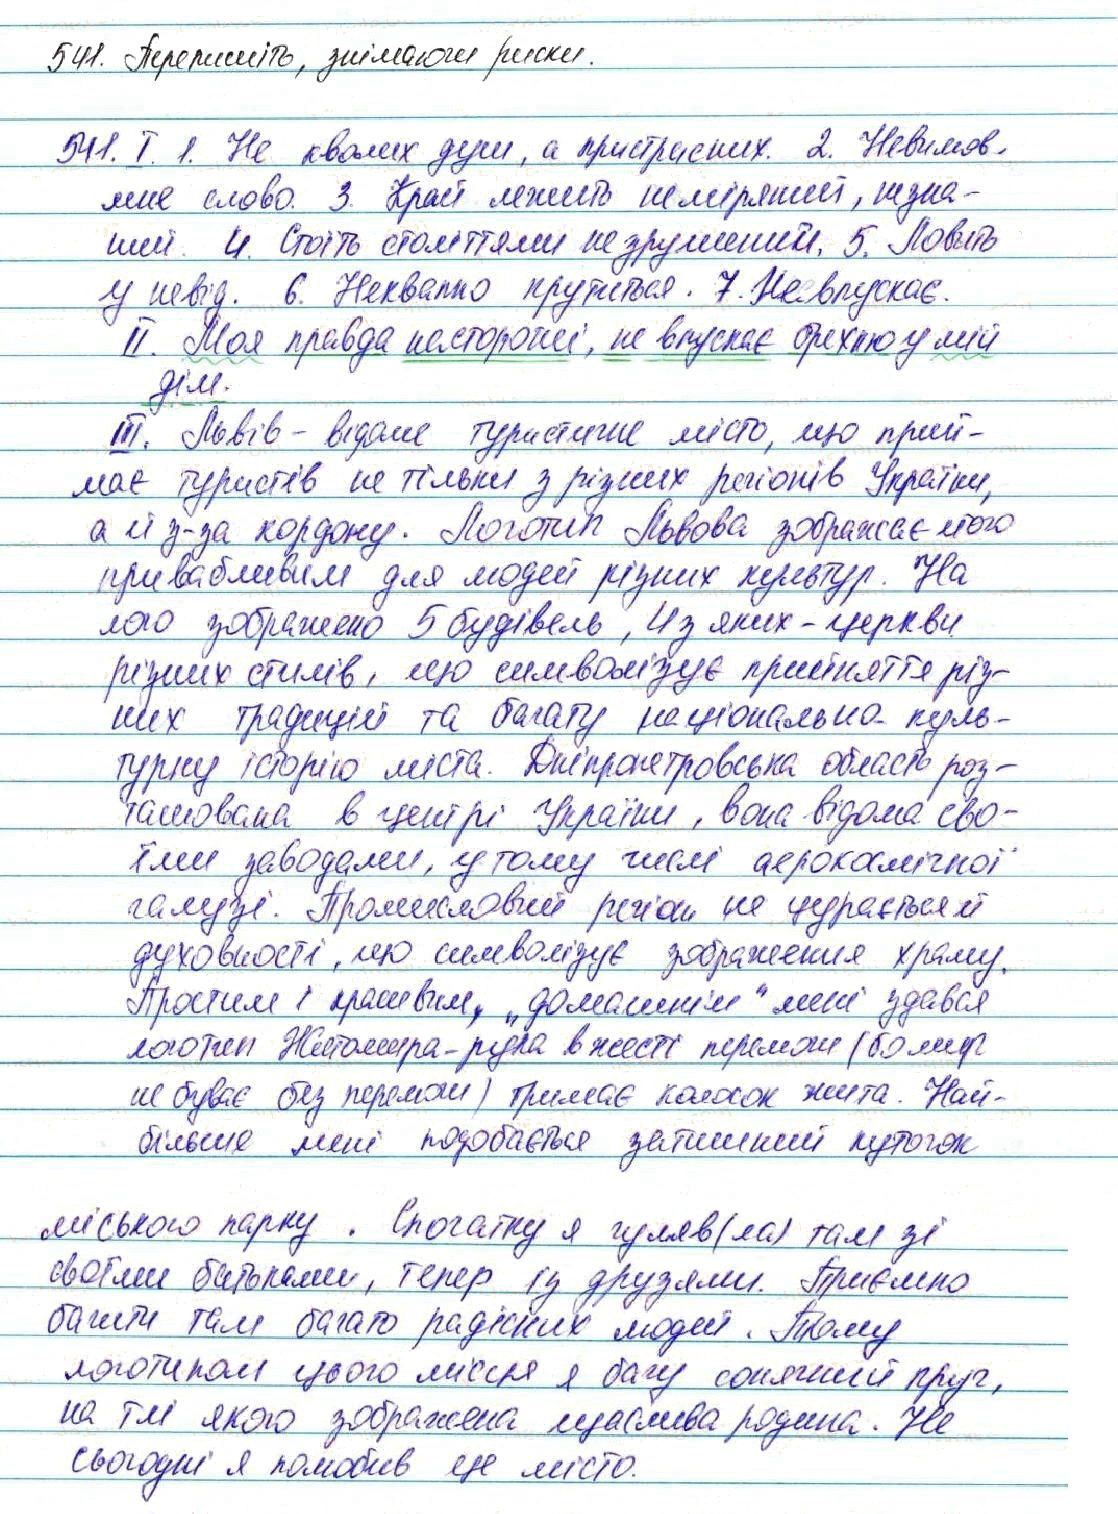 541. Перепишіть, знімаючи риски.
541. I. 1. Не кволих душ, а пристрасних. 2. Невимов-
мне слово. 3. Край лежить неміряний, незна-
ний. 4. Стоїть століттями незрушений. 5. Ловить
у невід. 6. Неквапно крутиться. 7. Не впускає.
II. Моя правда насторожі, не впускає брехню у мій
дім.
III. Львів – відоме туристичне місто, що прий-
має туристів не тільки з різних регіонів України,
а й з-за кордону. Логотип Львова зображає його
привабливим для людей різних культур. На
лого зображено 5 будівель, 4 з яких – церкви
різних стилів, що символізує прийняття різ-
них традицій та багату національно-куль-
турну історію міста. Дніпропетровська область роз-
ташована в центрі України, вона відома сво-
їми заводами, у тому числі аерокосмічної
галузі. Промисловий регіон не цурається й
духовності, що символізує зображення храму.
Простим і красивим, „домашнім" мені здався
логотип Житомира – рука в жесті перемоги (бо миру
не буває без перемоги) тримає колосок жита. Най-
більше мені подобається затишний куточок
міського парку. Спочатку я гуляв(ла) там зі
своїми батьками, тепер із друзями. Приємно
бачити там багато радісних людей. Тому
логотипом цього місця я бачу сонячний круг,
на тлі якого зображена щаслива родина. Не
сьогодні я полюбив це місто.